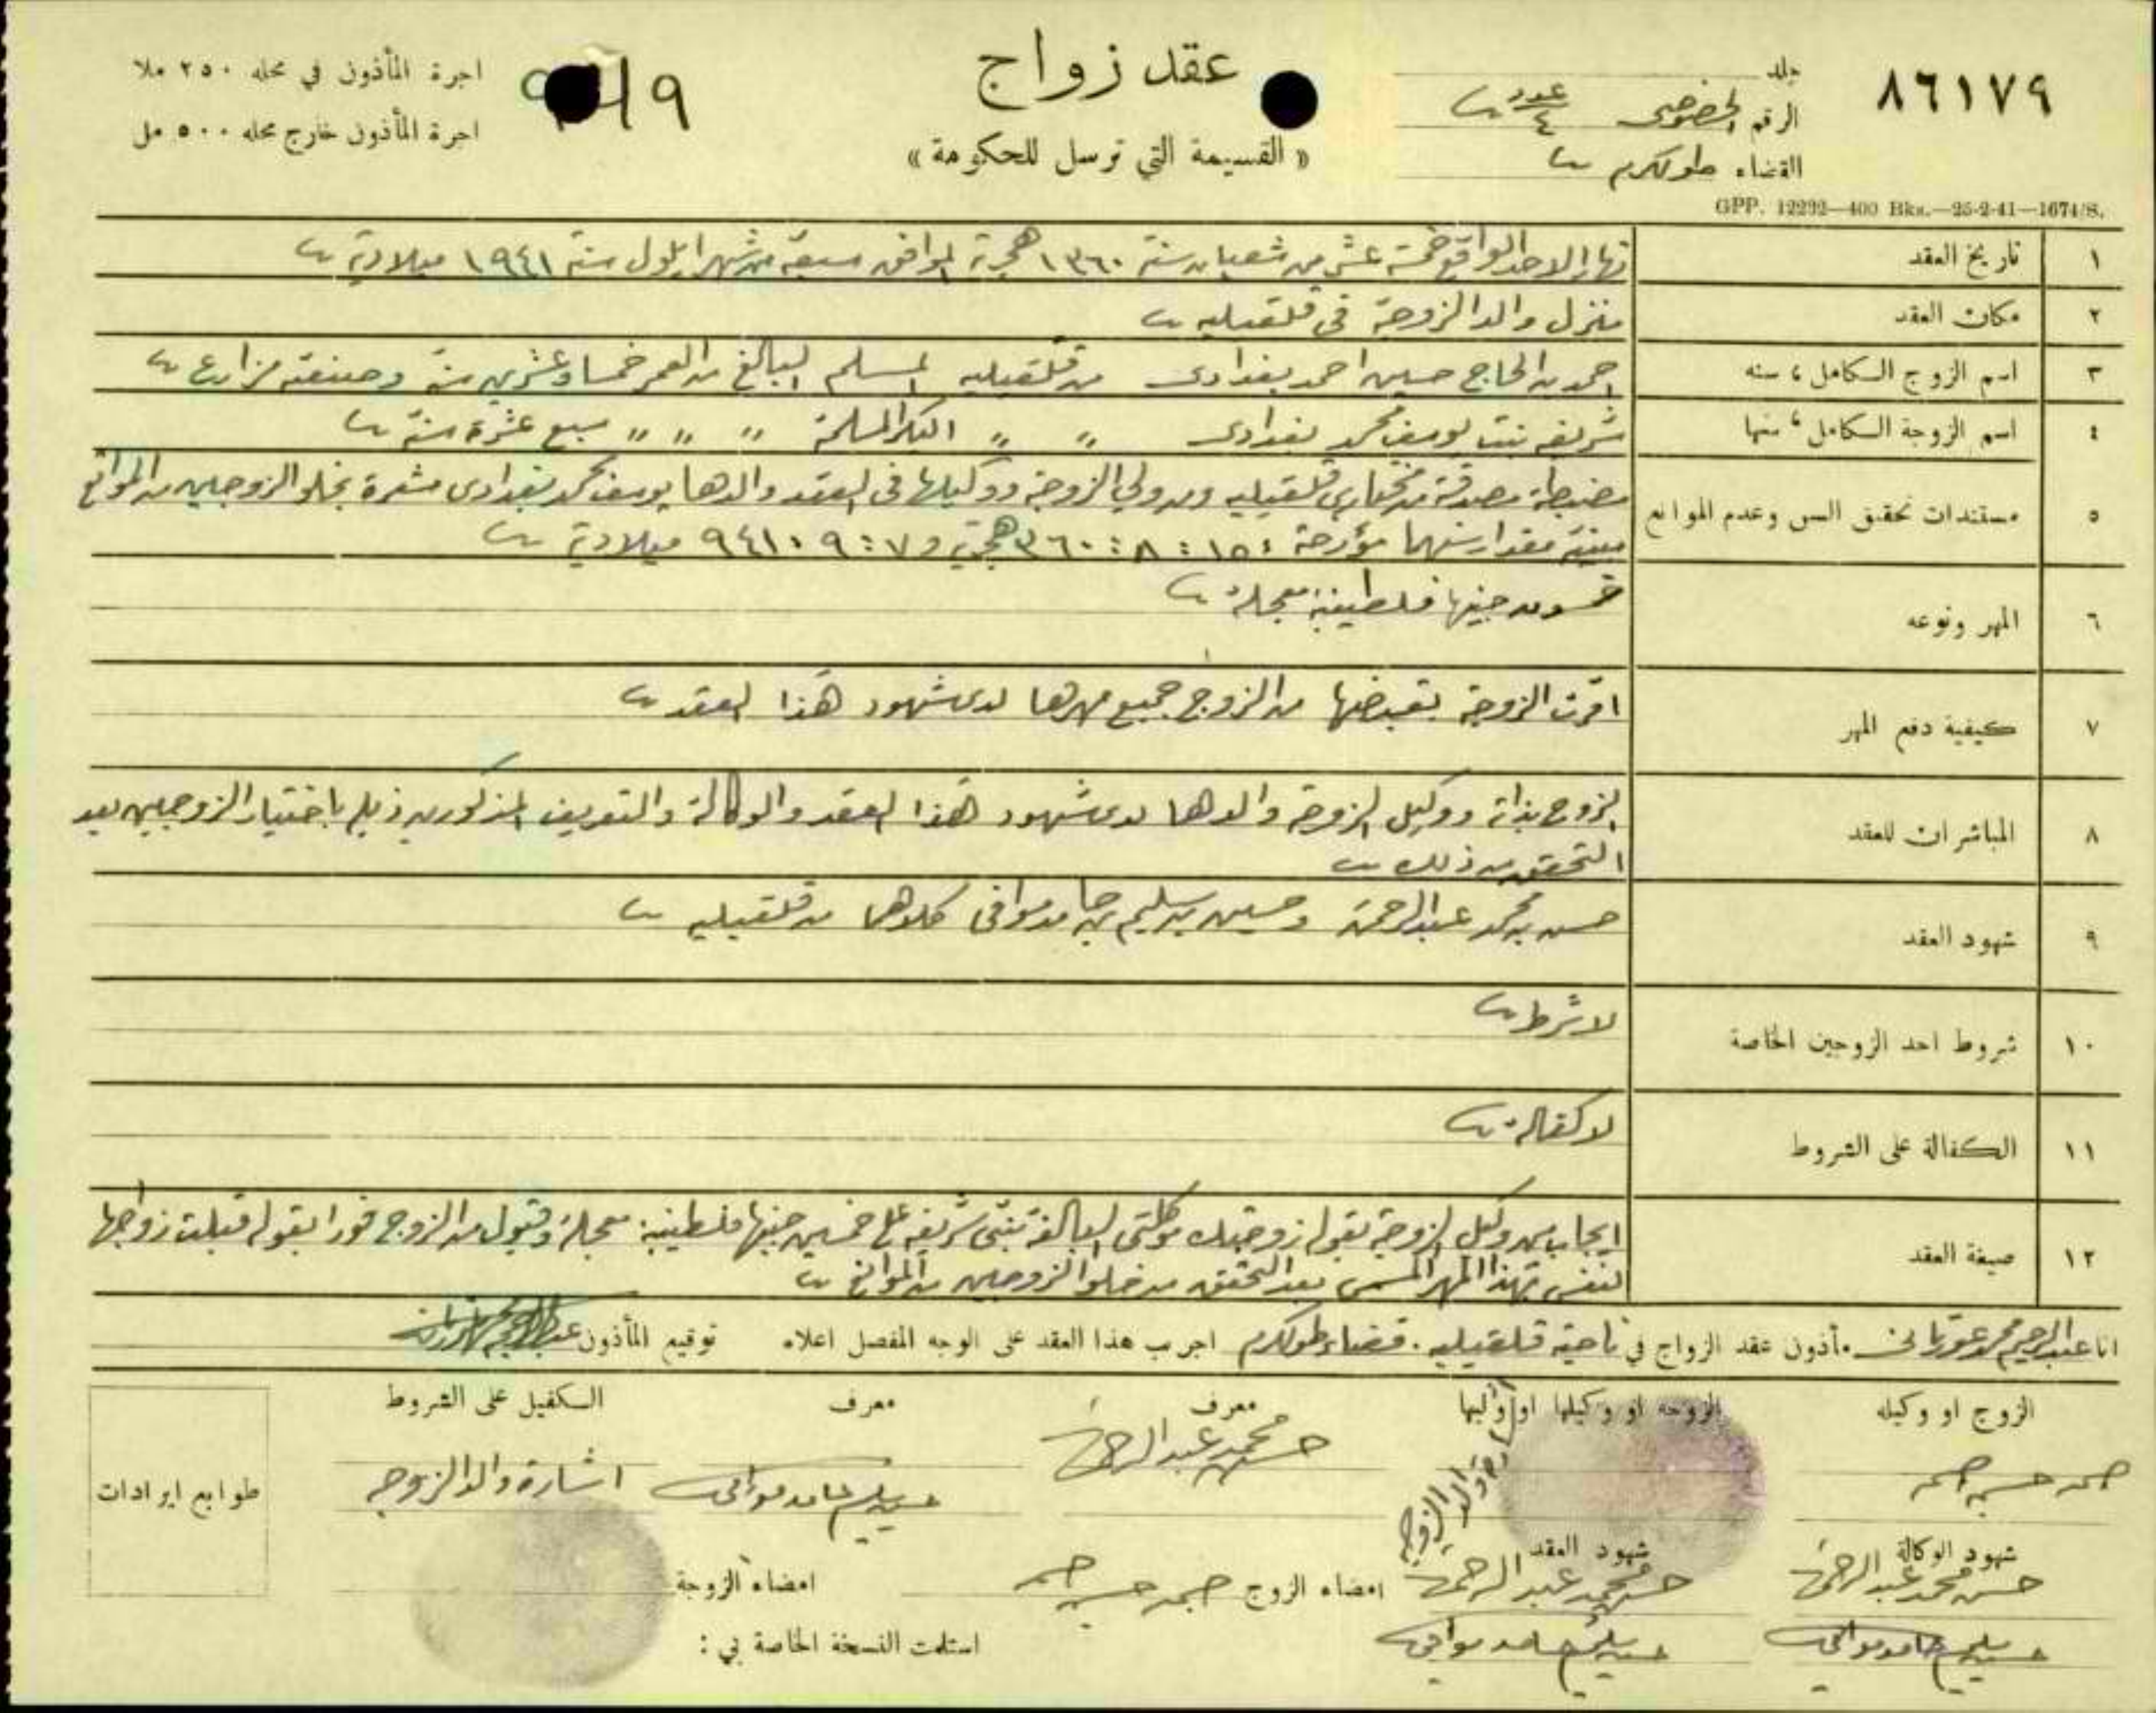 ٨٦١٧٩
جلد
الرقم الخصوصي عدد ٤
القضاء طولكرم
عقد زواج
« القسيمة التي ترسل للحكومة »
اجرة المأذون في محله ٢٥٠ ملا
اجرة المأذون خارج محله ٥٠٠ مل
GPP. 12292—400 Bks.—25-2-41—1674/S.
١ تاريخ العقد نهار الاحد الواقع خمسة عشر من شعبان سنة ١٣٦٠ هجرية الموافق سبعة من شهر ايلول سنة ١٩٤١ ميلادية
٢ مكان العقد منزل والد الزوجة في قلقيليه
٣ اسم الزوج الكامل، سنه احمد بن الحاج حسين احمد بغدادى من قلقيليه المسلم البالغ من العمر خمسا وعشرين سنة وصنعته مزارع
٤ اسم الزوجة الكامل، سنها شريفه بنت يوسف محمد بغدادى " " البكر المسلمة " " " سبع عشرة سنة
٥ مستندات تحقيق السن وعدم الموانع مضبطة مصدقة من مختارى قلقيليه ومن ولي الزوجة ووكيلها في العقد والدها يوسف محمد بغدادى مشعرة بخلو الزوجين من الموانع
مبينة مقدار سنهما مؤرخة ١٥ : ٨ : ٣٦٠ هجرية و ٧ : ٩ : ٩٤١ ميلادية
٦ المهر ونوعه خمسون جنيها فلسطينية معجلة
٧ كيفية دفع المهر اقرت الزوجة بقبضها من الزوج جميع مهرها لدى شهود هذا العقد
٨ المباشران للعقد الزوج بذاته ووكيل الزوجة والدها لدى شهود هذا العقد والوكالة والتعريف المذكورين ذيله باختيار الزوجين بعد
التحقق من ذلك
٩ شهود العقد حسن بن محمد عبدالرحمن وحسين بن سليم بن حامد موافي كلاهما من قلقيليه
١٠ شروط احد الزوجين الخاصة لا شرط
١١ الكفالة على الشروط لا كفالة
١٢ صيغة العقد ايجاب من وكيل الزوجة بقوله زوجتك موكلتي البالغة بنتي شريفه على خمسين جنيها فلسطينية معجلة وقبول من الزوج فورا بقوله قبلت زواجها
لنفسي بهذا المهر المسمى بعد التحقق من خلو الزوجين من الموانع
انا عبدالرحيم محمد مأذون عقد الزواج في ناحية قلقيليه. قضاء طولكرم اجريت هذا العقد على الوجه المفصل اعلاه توقيع المأذون
الزوج او وكيله الزوجة او وكيلها او وليها معرف معرف الكفيل على الشروط
احمد حسين احمد اشارة والد الزوجه حسن محمد عبدالرحمن حسين سليم حامد موافي اشارة والد الزوجه
طوابع ايرادات
شهود الوكالة شهود العقد
حسن محمد عبدالرحمن حسن محمد عبدالرحمن امضاء الزوج احمد حسين احمد امضاء الزوجة
حسين سليم حامد موافي حسين سليم حامد موافي استلمت النسخة الخاصة بي :